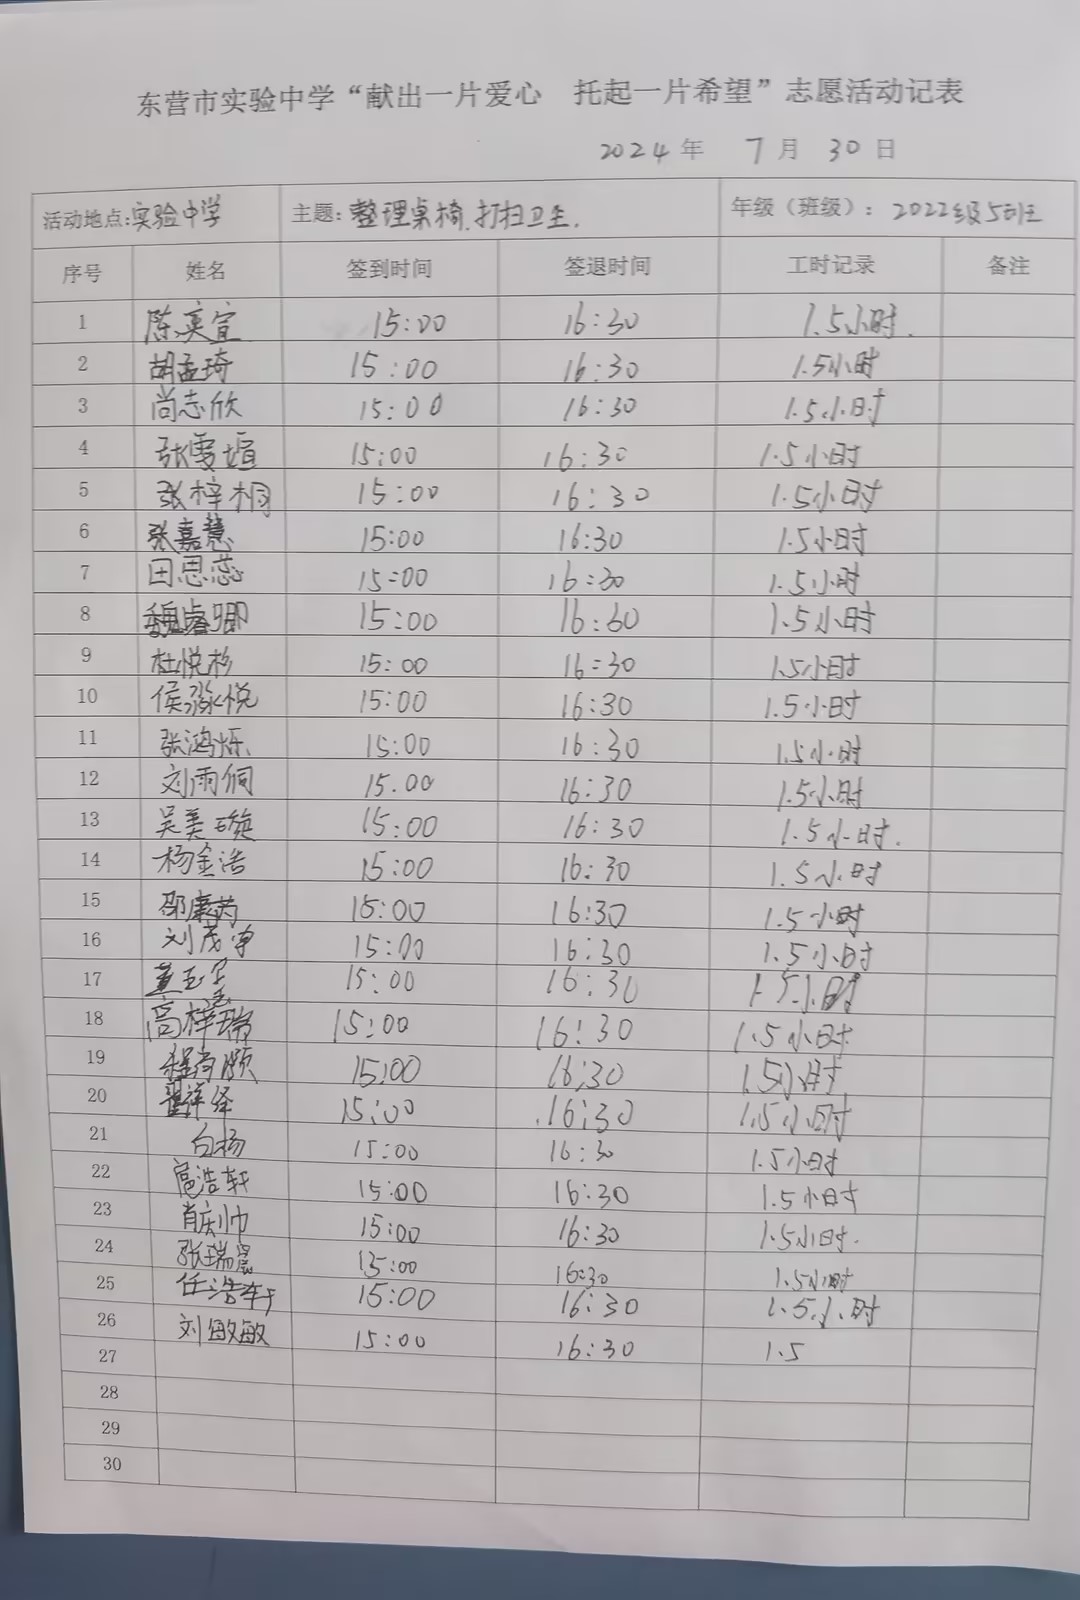 东营市实验中学“献出一片爱心 托起一片希望”志愿活动记表
2024年 7月 30日
活动地点:实验中学 主题:整理桌椅.打扫卫生. 年级（班级）: 2022级5班
序号 姓名 签到时间 签退时间 工时记录 备注
1 陈奕宣 15:00 16:30 1.5小时.
2 胡孟琦 15:00 16:30 1.5小时
3 尚志欣 15:00 16:30 1.5小时
4 张雯 15:00 16:30 1.5小时
5 张梓桐 15:00 16:30 1.5小时
6 张嘉慧 15:00 16:30 1.5小时
7 田思蕊 15:00 16:30 1.5小时
8 魏睿卿 15:00 16:60 1.5小时
9 杜悦杉 15:00 16:30 1.5小时
10 侯淼悦 15:00 16:30 1.5小时
11 张鸿烁 15:00 16:30 1.5小时
12 刘雨侗 15.00 16:30 1.5小时
13 吴美璇 15:00 16:30 1.5小时.
14 杨金浩 15:00 16:30 1.5小时
15 邵康 15:00 16:30 1.5小时
16 刘茂 15:00 16:30 1.5小时
17 董玉 15:00 16:30 1.5小时
18 高梓瑞 15:00 16:30 1.5小时
19 程 15:00 16:30 1.5小时
20 翟祥 15:00 16:30 1.5小时
21 白杨 15:00 16:30 1.5小时
22 扈浩轩 15:00 16:30 1.5小时
23 肖庆帅 15:00 16:30 1.5小时.
24 张瑞 15:00 16:30 1.5小时
25 任浩轩 15:00 16:30 1.5小时
26 刘敏敏 15:00 16:30 1.5
27
28
29
30